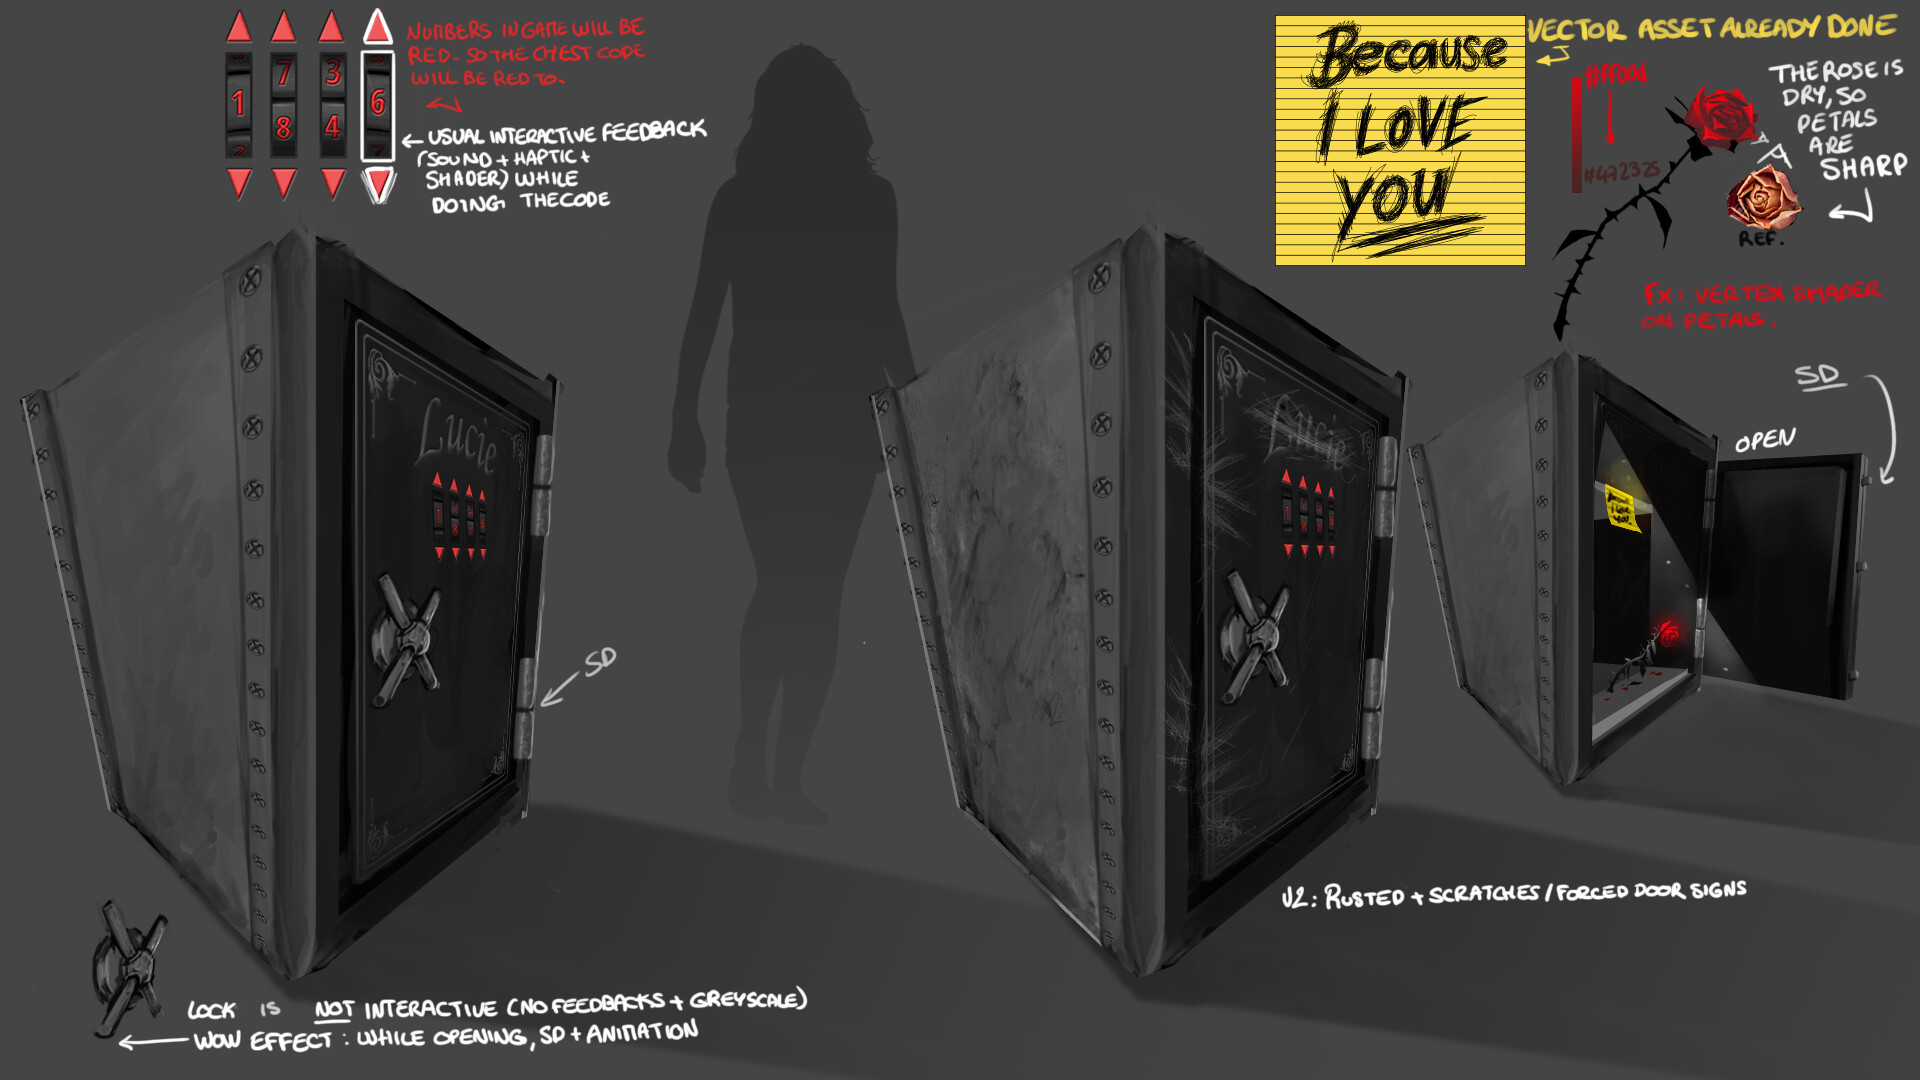 NUMBERS IN GAME WILL BE
RED. SO THE CHEST CODE
WILL BE RED TO.
1 7 3 6
8 4
← USUAL INTERACTIVE FEEDBACK
(SOUND + HAPTIC +
SHADER) WHILE
DOING THE CODE
Because
I LOVE
YOU
VECTOR ASSET ALREADY DONE
#ff00d
#472325
THE ROSE IS
DRY, SO
PETALS
ARE
SHARP
REF.
FX : VERTEX SHADER
ON PETALS.
SD
OPEN
Lucie
Lucie
Because
I LOVE
YOU
SD
V2 : RUSTED + SCRATCHES / FORCED DOOR SIGNS
LOCK IS NOT INTERACTIVE (NO FEEDBACKS + GREYSCALE)
WOW EFFECT : WHILE OPENING, SD + ANIMATION